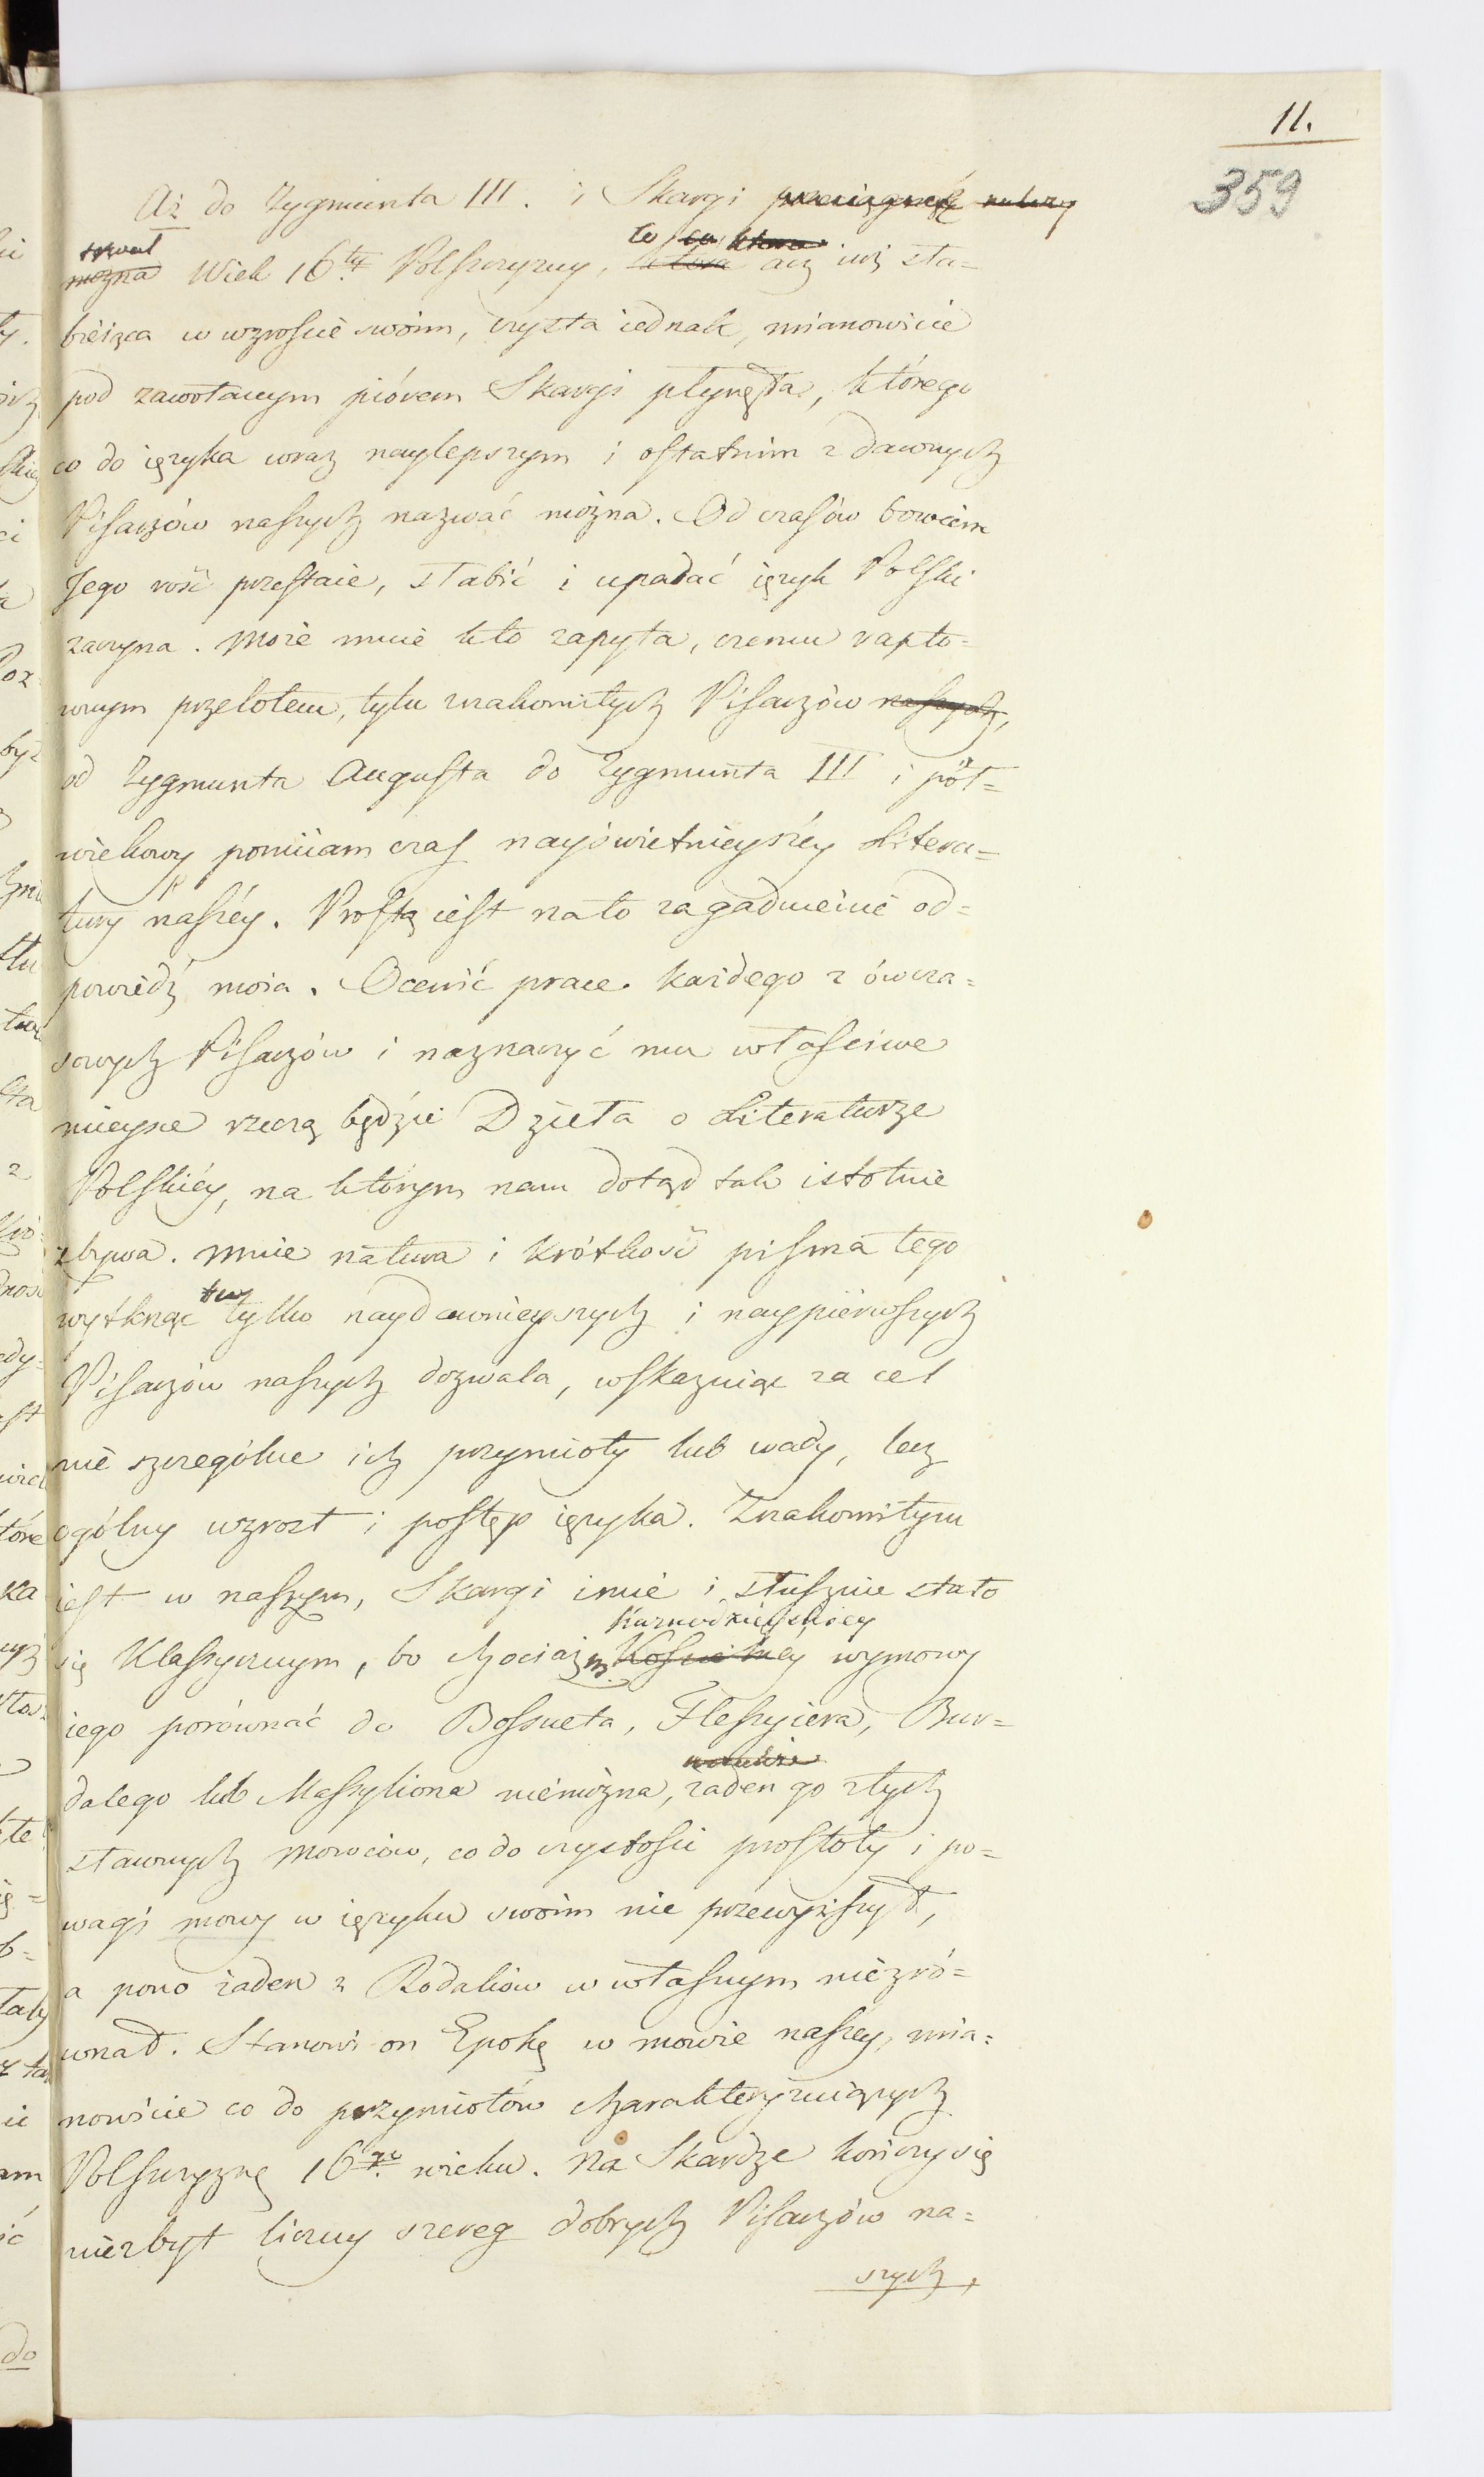 11.
359
Aż do Zygmunta III. i Skargi przeciągnąć należy
trwał
można Wiek 16ty Polszczyzny, która acz iuż sła-
to co która
bieiąca w wzroście swoim, czysta iednak, mianowicie
pod zawołanym piórem Skargi płynęła, którego
co do ięzyka wraz naylepszym i ostatnim z dawnych
Pisarzów naszych nazwać można. Od czasów bowiem
Jego róść przestaie, słabić i upadać ięzyk Polski
zaczyna. Może mnie kto zapyta, czemu rapto-
wnym przelotem, tylu znakomitych Pisarzów naszych,
od Zygmunta Augusta do Zygmunta III i pół-
wiekowy pomiiam czas nayświetnieyszéy Litera-
tury naszéy. Prostą iest na to zagadnienie od-
powiedź moia. Ocenić prace każdego z ówcza-
sowych Pisarzów i naznaczyć mu właściwe
mieysce rzeczą będzie Dzieła o Literaturze
Polskiéy, na którym nam dotąd tak istotnie
zbywa. Mnie natura i krótkość pisma tego
wytknąć tu tylko naydawnieyszych i naypierwszych
Pisarzów naszych dozwala, wskazuiąc za cel
nie szczególne ich przymioty lub wady, lecz
ogólny wzrost i postęp ięzyka. Znakomitym
iest w naszym, Skargi imie i słusznie stało
Kaznodzieyskiey
się Klassycznym, bo chociaż Kościelnéy wymowy
iego porównać do Bossueta, Fleszyiera, Bur-
dalego lub Massyliona niemożna, żaden go z tych
sławnych Mowców, co do czystości prostoty i po-
wagi mowy w ięzyku swoim nie przewyższył,
a pono żaden z Rodaków w własnym niezró-
wnał. Stanowi on Epokę w mowie naszéy, mia-
nowicie co do przymiotów charakteryzuiących
Polszczyznę 16go wieku. Na Skardze kończy się
niezbyt liczny szereg dobrych Pisarzów na-
szych,